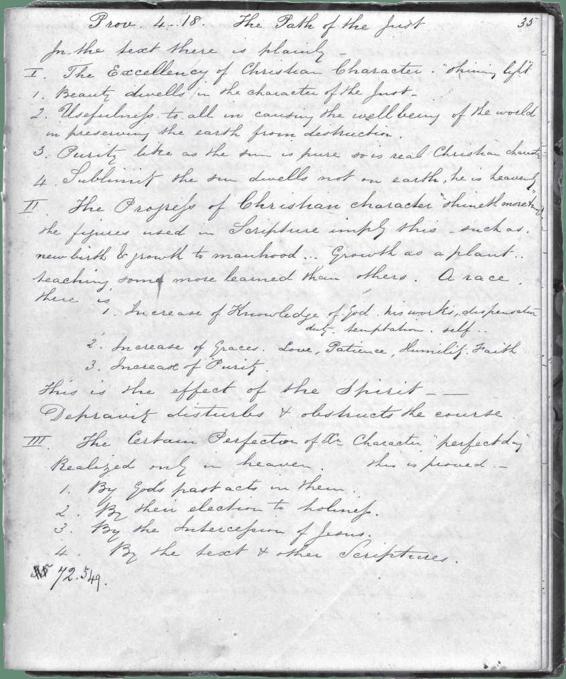 Prov. 4.. 18. The Path of the Just 35
In the text there is plainly —
I. The Excellency of Christian Character. "shining light"
1. Beauty dwells in the character of the Just.
2. Usefulness to all in causing the wellbeing of the world
in preserving the earth from destruction.
3. Purity like as the sun is pure so is real Christian
4. Sublimity the sun dwells not on earth, he is heavenly
II. The Progress of Christian character "shineth more &
the figures used in Scripture imply this - such as.
new birth & growth to manhood... Growth as a plant..
teaching some more learned than others. A race.
there is
1. Increase of Knowledge of God. his works, dispensation
duty. temptation. self..
2. Increase of Graces. Love, Patience, Humility. Faith
3. Increase of Purity.
This is the effect of the Spirit — —
Depravity disturbs & obstructs the course
III. The Certain Perfection of Xn Character "perfect day"
Realized only in heaven. this is proved —
1. By Gods past acts in them.
2. By their election to holiness.
3. By the Intercession of Jesus.
4. By the text & other Scriptures.
72. 549.